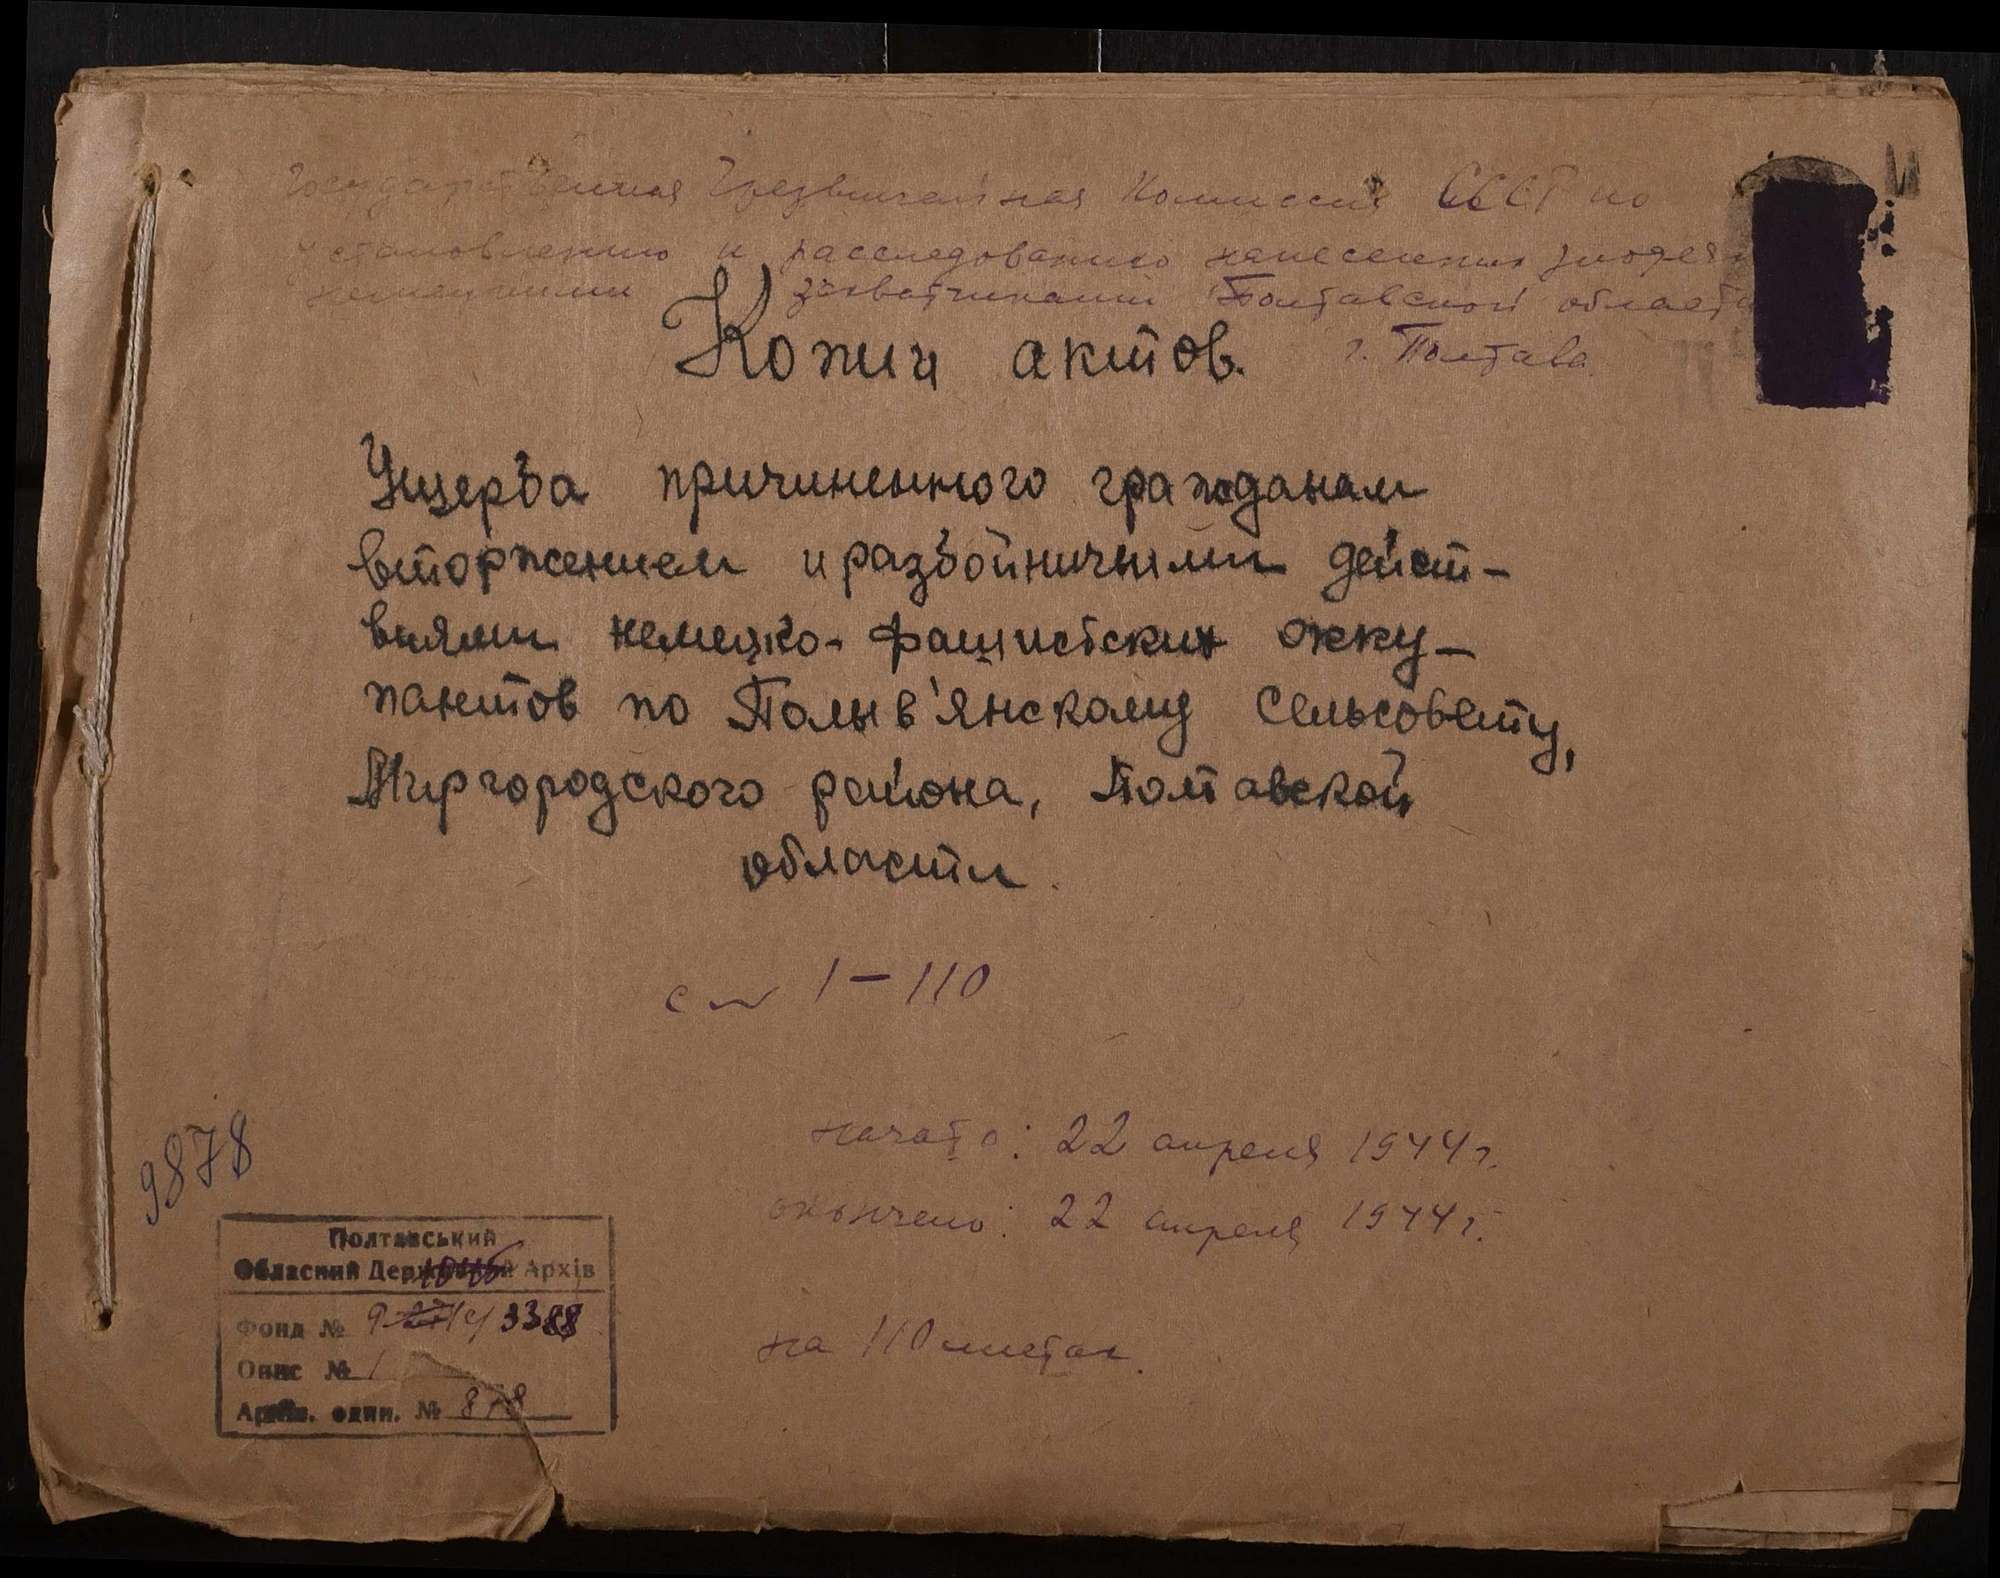 Государственная Чрезвычайная Комиссия СССР по
установлению и расследованию нанесения злодея
немецкими захватчиками Полтавской области
г. Полтава.
Копии актов.
Ущерба причиненного гражданам
вторжением и разбойничьими дейст-
виями немецко-фашистских окку-
пантов по Полыв'янскому Сельсовету,
Миргородского района, Полтавской
области.
1-110
начато: 22 апреля 1944 г.
окончено: 22 апреля 1944 г.
на 110 листах.
9878
Полтавський
Обласний Державний Архів
Фонд № 3388
Опис № 1
Архів. один. № 878